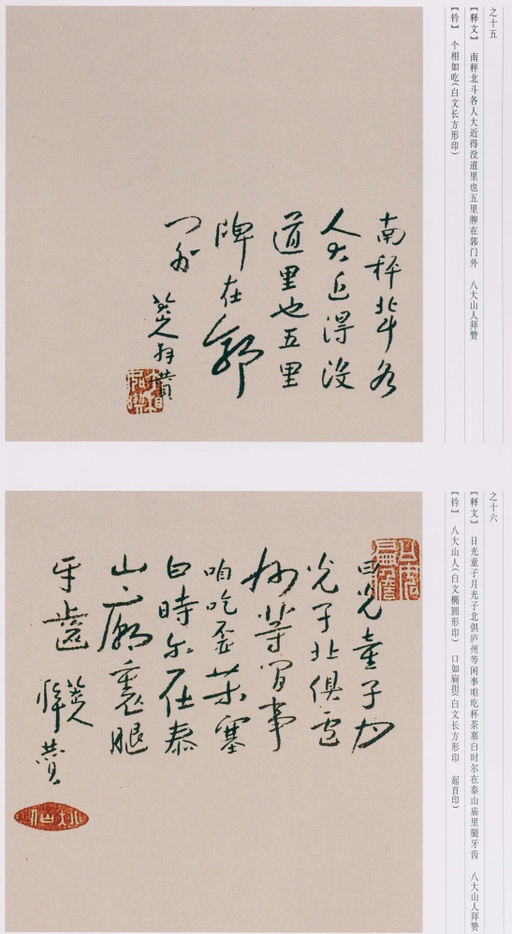 之十五
【释文】 南秤北斗各人大近得没道里也五里牌在郭门外 八大山人拜赞
【钤】 个相如吃(白文长方形印)
南秤北斗各
人大近得没
道里也五里
牌在郭
门外
八大山人拜赞
之十六
【释文】 日光童子月光子北俱庐州等闲事咱吃杯茶塞白时尔在泰山庙里腿牙齿 八大山人拜赞
【钤】 八大山人(白文椭圆形印) 口如扁担(白文长方形印 起首印)
日光童子月
光子北俱庐
州等闲事
咱吃杯茶塞
白时尔在泰
山庙里腿
牙齿
八大山人拜赞